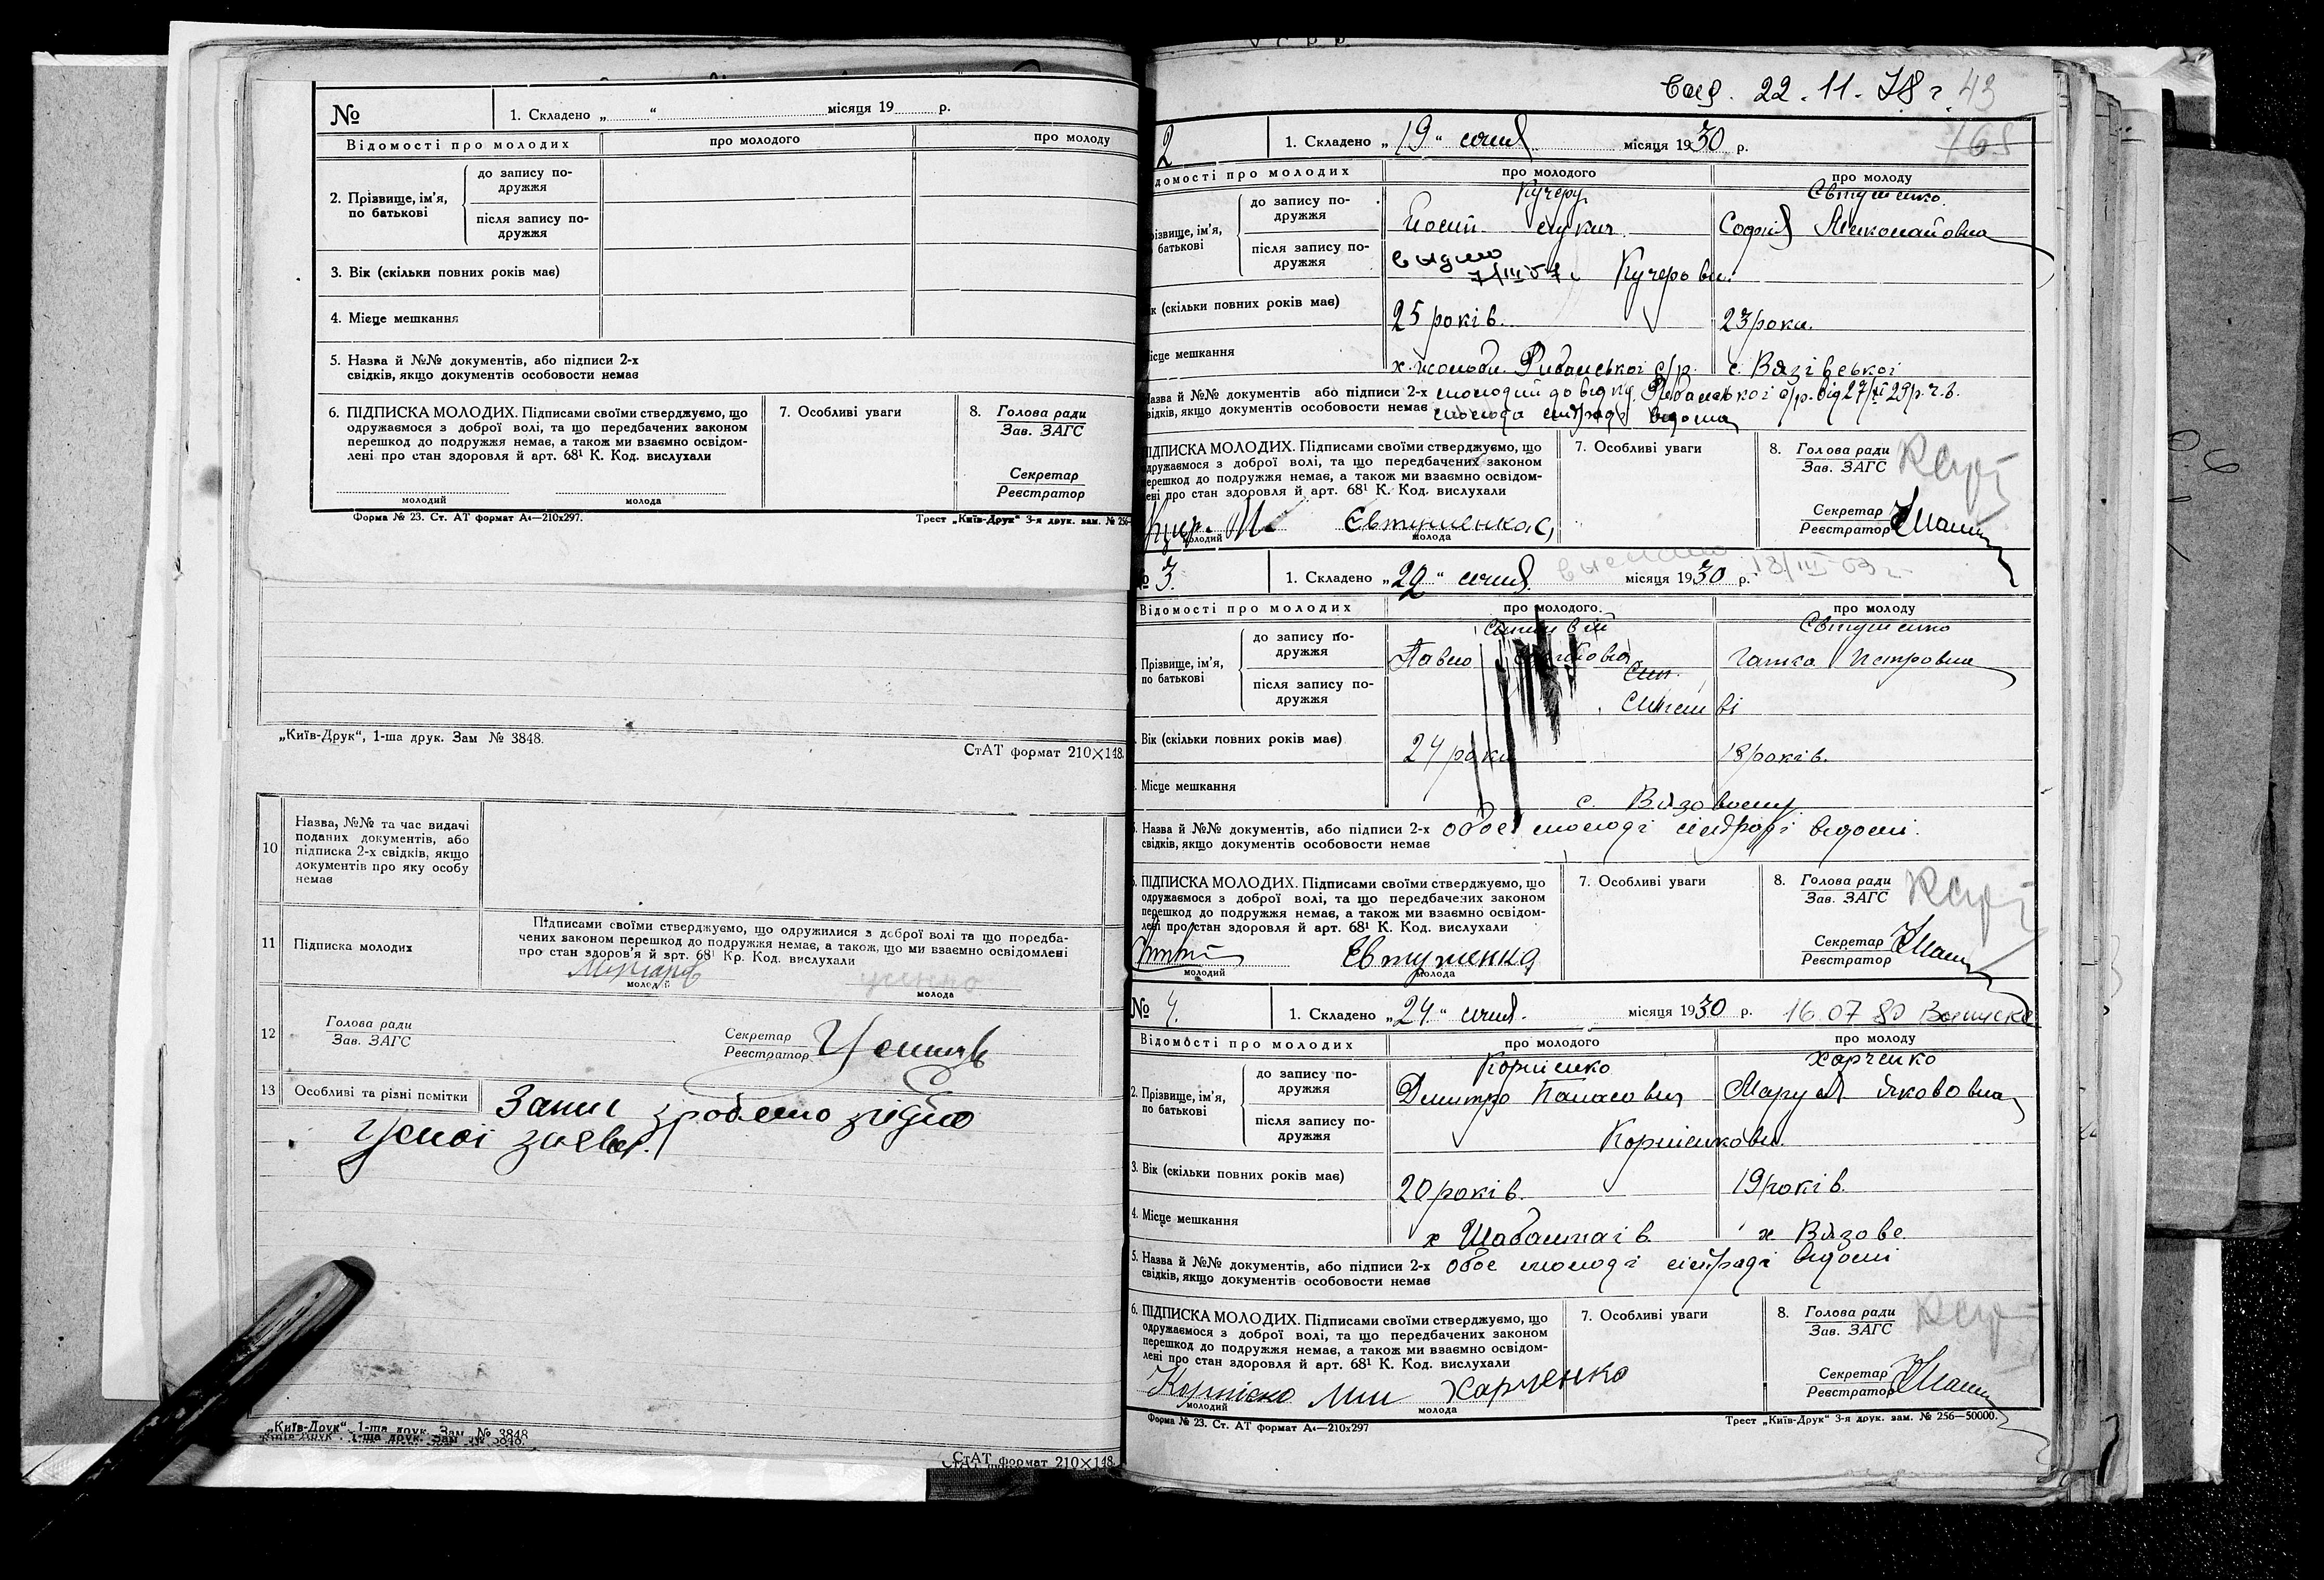 №
1. Складено „ “ місяця 19 р.
Відомості про молодих
про молодого
про молоду
2. Прізвище, ім'я, по батькові
до запису подружжя
після запису подружжя
3. Вік (скільки повних років має)
4. Місце мешкання
5. Назва й №№ документів, або підписи 2-х
свідків, якщо документів особовости немає
6. ПІДПИСКА МОЛОДИХ. Підписами своїми стверджуємо, що
одружаємося з доброї волі, та що передбачених законом
перешкод до подружжя немає, а також ми взаємно освідом-
лені про стан здоровля й арт. 68¹ К. Код. вислухали
молодий молода
7. Особливі уваги
8. Голова ради
Зав. ЗАГС
Секретар
Реєстратор
Форма № 23. Ст. АТ формат А4—210x297.
Трест „Київ-Друк“ 3-я друк. зам. № 256
„Київ-Друк“, 1-ша друк. Зам № 3848.
СтАТ формат 210×148.
10
Назва, №№ та час видачі
поданих документів, або
підписка 2-х свідків, якщо
документів про яку особу
немає
11 Підписка молодих
Підписами своїми стверджуємо, що одружилися з доброї волі та що передба-
чених законом перешкод до подружжя немає, а також, що ми взаємно освідомлені
про стан здоров'я й арт. 68¹ Кр. Код. вислухали
молодий
молода
12
Голова ради
Зав. ЗАГС
Секретар
Реєстратор
13 Особливі та різні помітки
Запис зроблено згідно
усної заяви.
„Київ-Друк“, 1-ша друк. Зам № 3848
СтАТ формат 210×148.
22.11.78 г. 43
168
2
1. Складено „19“ січня місяця 1930 р.
домості про молодих
про молодого
про молоду
різвище, ім'я,
батькові
до запису по-
дружжя
після запису по-
дружжя
Євтушенко
Софія
Кучерови.
ік (скільки повних років має)
25 років.
23 роки.
ісце мешкання
с/р.
азва й №№ документів або підписи 2-х
свідків, якщо документів особовости немає
молода сільраді відома
ПІДПИСКА МОЛОДИХ. Підписами своїми стверджуємо, що
одружаємося з доброї волі, та що передбачених законом
перешкод до подружжя немає, а також ми взаємно освідом-
лені про стан здоровля й арт. 68¹ К. Код. вислухали
Євтушенко С
молодий
молода
7. Особливі уваги
8. Голова ради
Зав. ЗАГС
Секретар
Реєстратор
№ 3.
1. Складено „ “ січня місяця 1930 р.
Відомості про молодих
про молодого
про молоду
Прізвище, ім'я,
по батькові
до запису по-
дружжя
після запису по-
дружжя
Павло
Євтушенко
Галька Петровна
Вік (скільки повних років має)
24 роки
18 років.
Місце мешкання
с.
5. Назва й №№ документів, або підписи 2-х
свідків, якщо документів особовости немає
обоє молоді сільраді відомі.
6. ПІДПИСКА МОЛОДИХ. Підписами своїми стверджуємо, що
одружаємося з доброї волі, та що передбачених законом
перешкод до подружжя немає, а також ми взаємно освідом-
лені про стан здоровля й арт. 68¹ К. Код. вислухали
Євтушенко
молодий
молода
7. Особливі уваги
8. Голова ради
Зав. ЗАГС
Секретар
Реєстратор
№ 4.
1. Складено „24“ січня. місяця 1930 р.
16 07 80
Відомості про молодих
про молодого
про молоду
2. Прізвище, ім'я,
по батькові
до запису по-
дружжя
після запису по-
дружжя
Корнієнко
Дмитро Панасович
Харченко
Маруся Якововна
Корнієнкови.
3. Вік (скільки повних років має)
20 років.
19 років.
4. Місце мешкання
х Шабашнаів.
х Вязове.
5. Назва й №№ документів, або підписи 2-х
свідків, якщо документів особовости немає
обоє молоді сільраді відомі
6. ПІДПИСКА МОЛОДИХ. Підписами своїми стверджуємо, що
одружаємося з доброї волі, та що передбачених законом
перешкод до подружжя немає, а також ми взаємно освідом-
лені про стан здоровля й арт. 68¹ К. Код. вислухали
Харченко
молодий
молода
7. Особливі уваги
8. Голова ради
Зав. ЗАГС
Секретар
Реєстратор
Форма № 23. Ст. АТ формат А4—210x297
Трест „Київ-Друк“ 3-я друк. зам. № 256—50000.